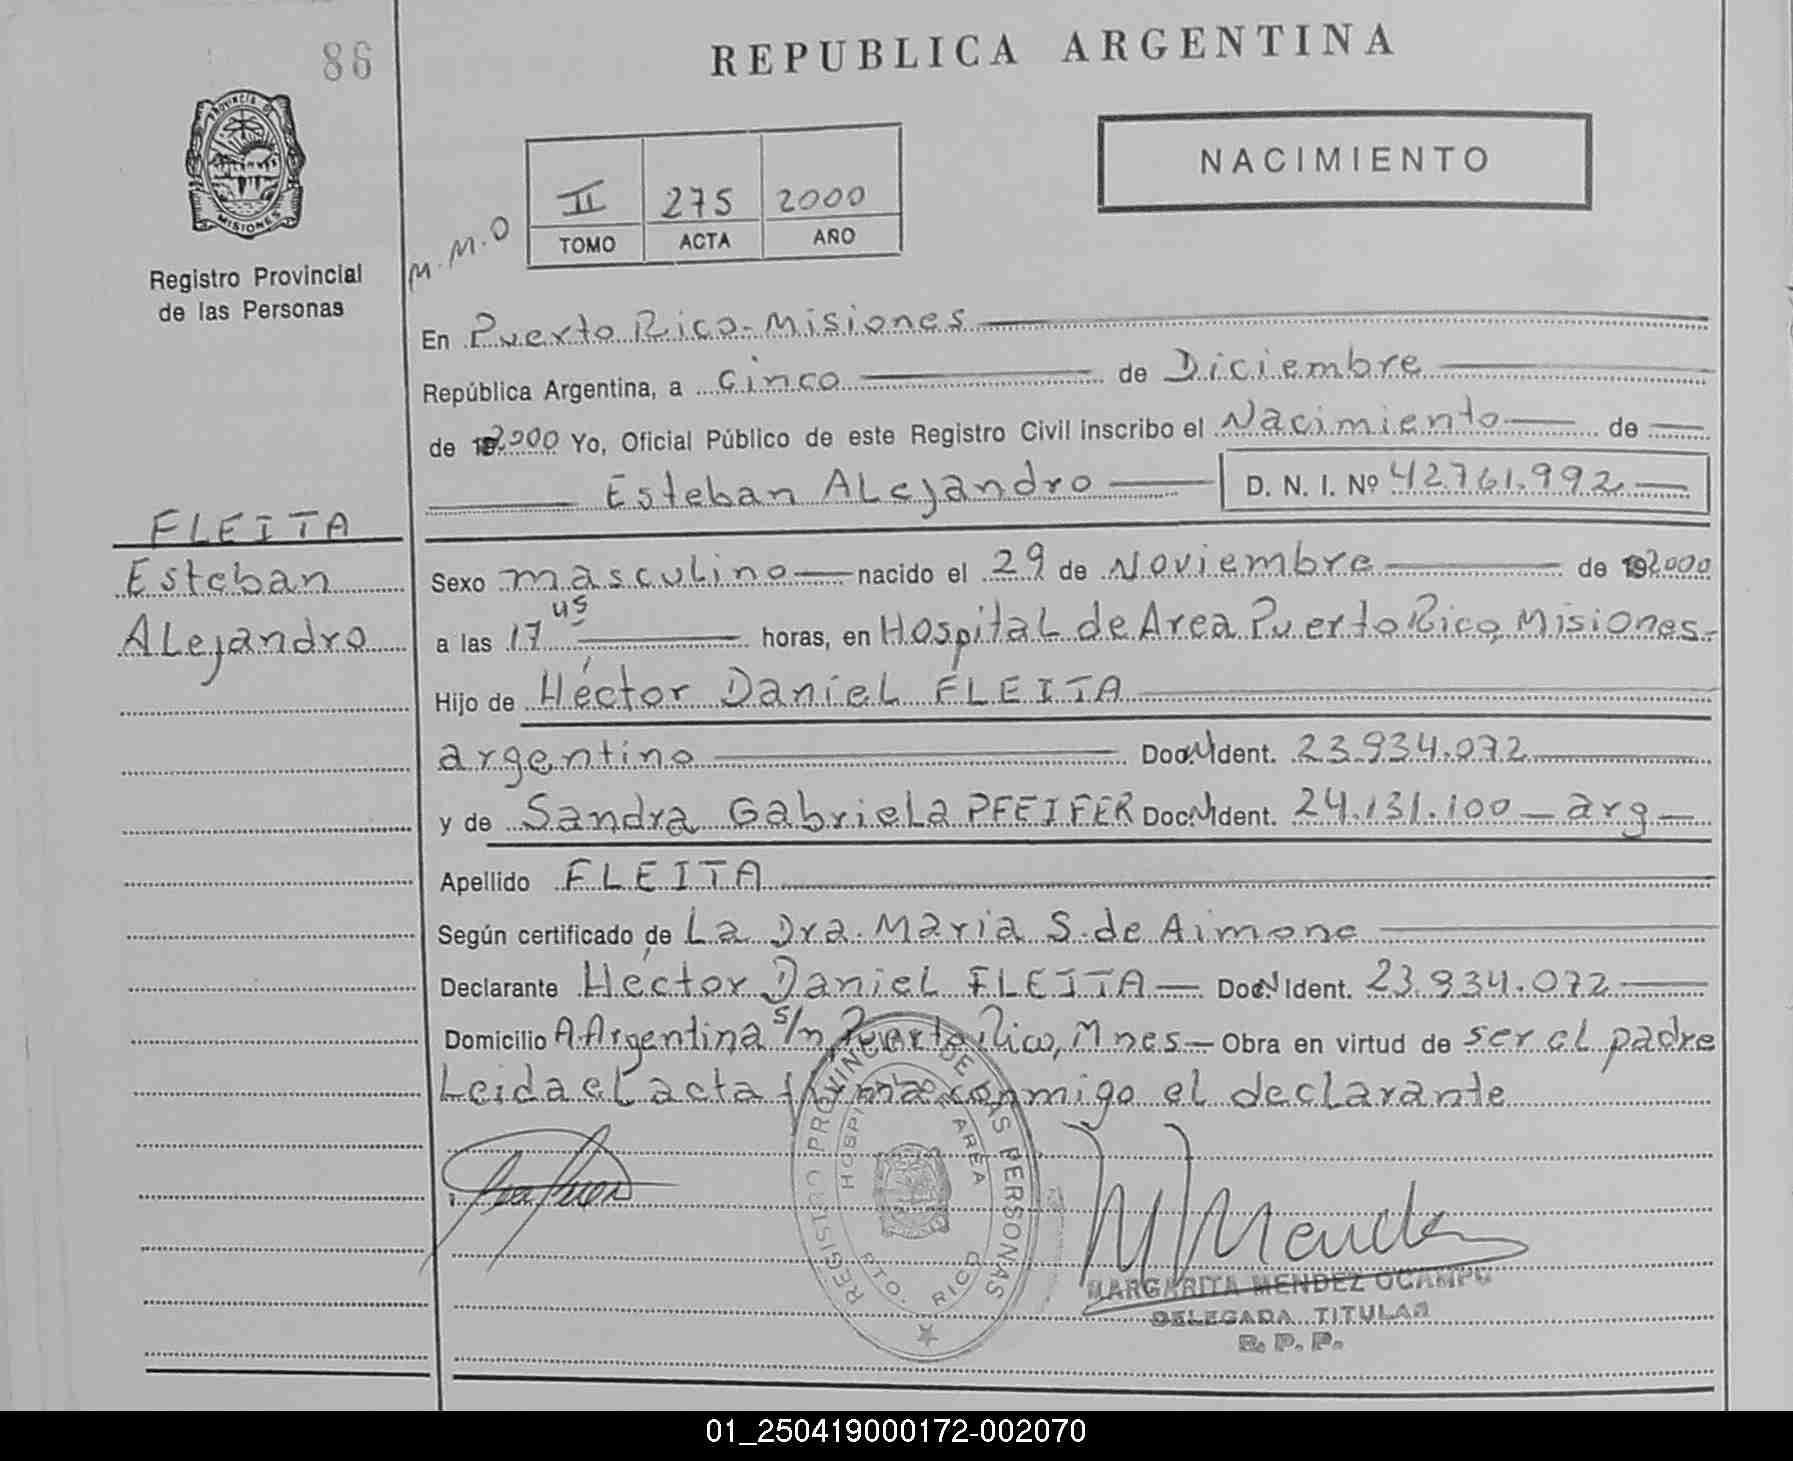 86
REPUBLICA ARGENTINA
PROVINCIA DE
MISIONES
NACIMIENTO
II 275 2000
TOMO ACTA AÑO
M.M.O
Registro Provincial
de las Personas
En Puerto Rico - Misiones
República Argentina, a cinco de Diciembre
de 2000 Yo, Oficial Público de este Registro Civil inscribo el Nacimiento de
Esteban ALejandro D. N. I. Nº 42.761.992
FLEITA
Esteban
ALejandro
Sexo masculino nacido el 29 de Noviembre de 2000
a las 17 45 horas, en HospitaL de Area Puerto Rico, Misiones.
Hijo de Héctor DanieL FLEITA
argentino Doc. Ident. 23.934.072
y de Sandra GabrieLa PFEIFER Doc. Ident. 24.131.100 - arg -
Apellido FLEITA
Según certificado de La Dra. Maria S. de Aimone
Declarante Héctor DanieL FLEITA - Doc. Ident. 23.934.072
Domicilio A. Argentina s/n, Puerto Rico, Mnes - Obra en virtud de ser eL padre
Leida eL acta firma conmigo el declarante
REGISTRO PROVINCIAL DE LAS PERSONAS
HOSPITAL AREA
PTO. RICO
MARGARITA MENDEZ OCAMPO
DELEGADA TITULAR
R. P. P.
01_250419000172-002070